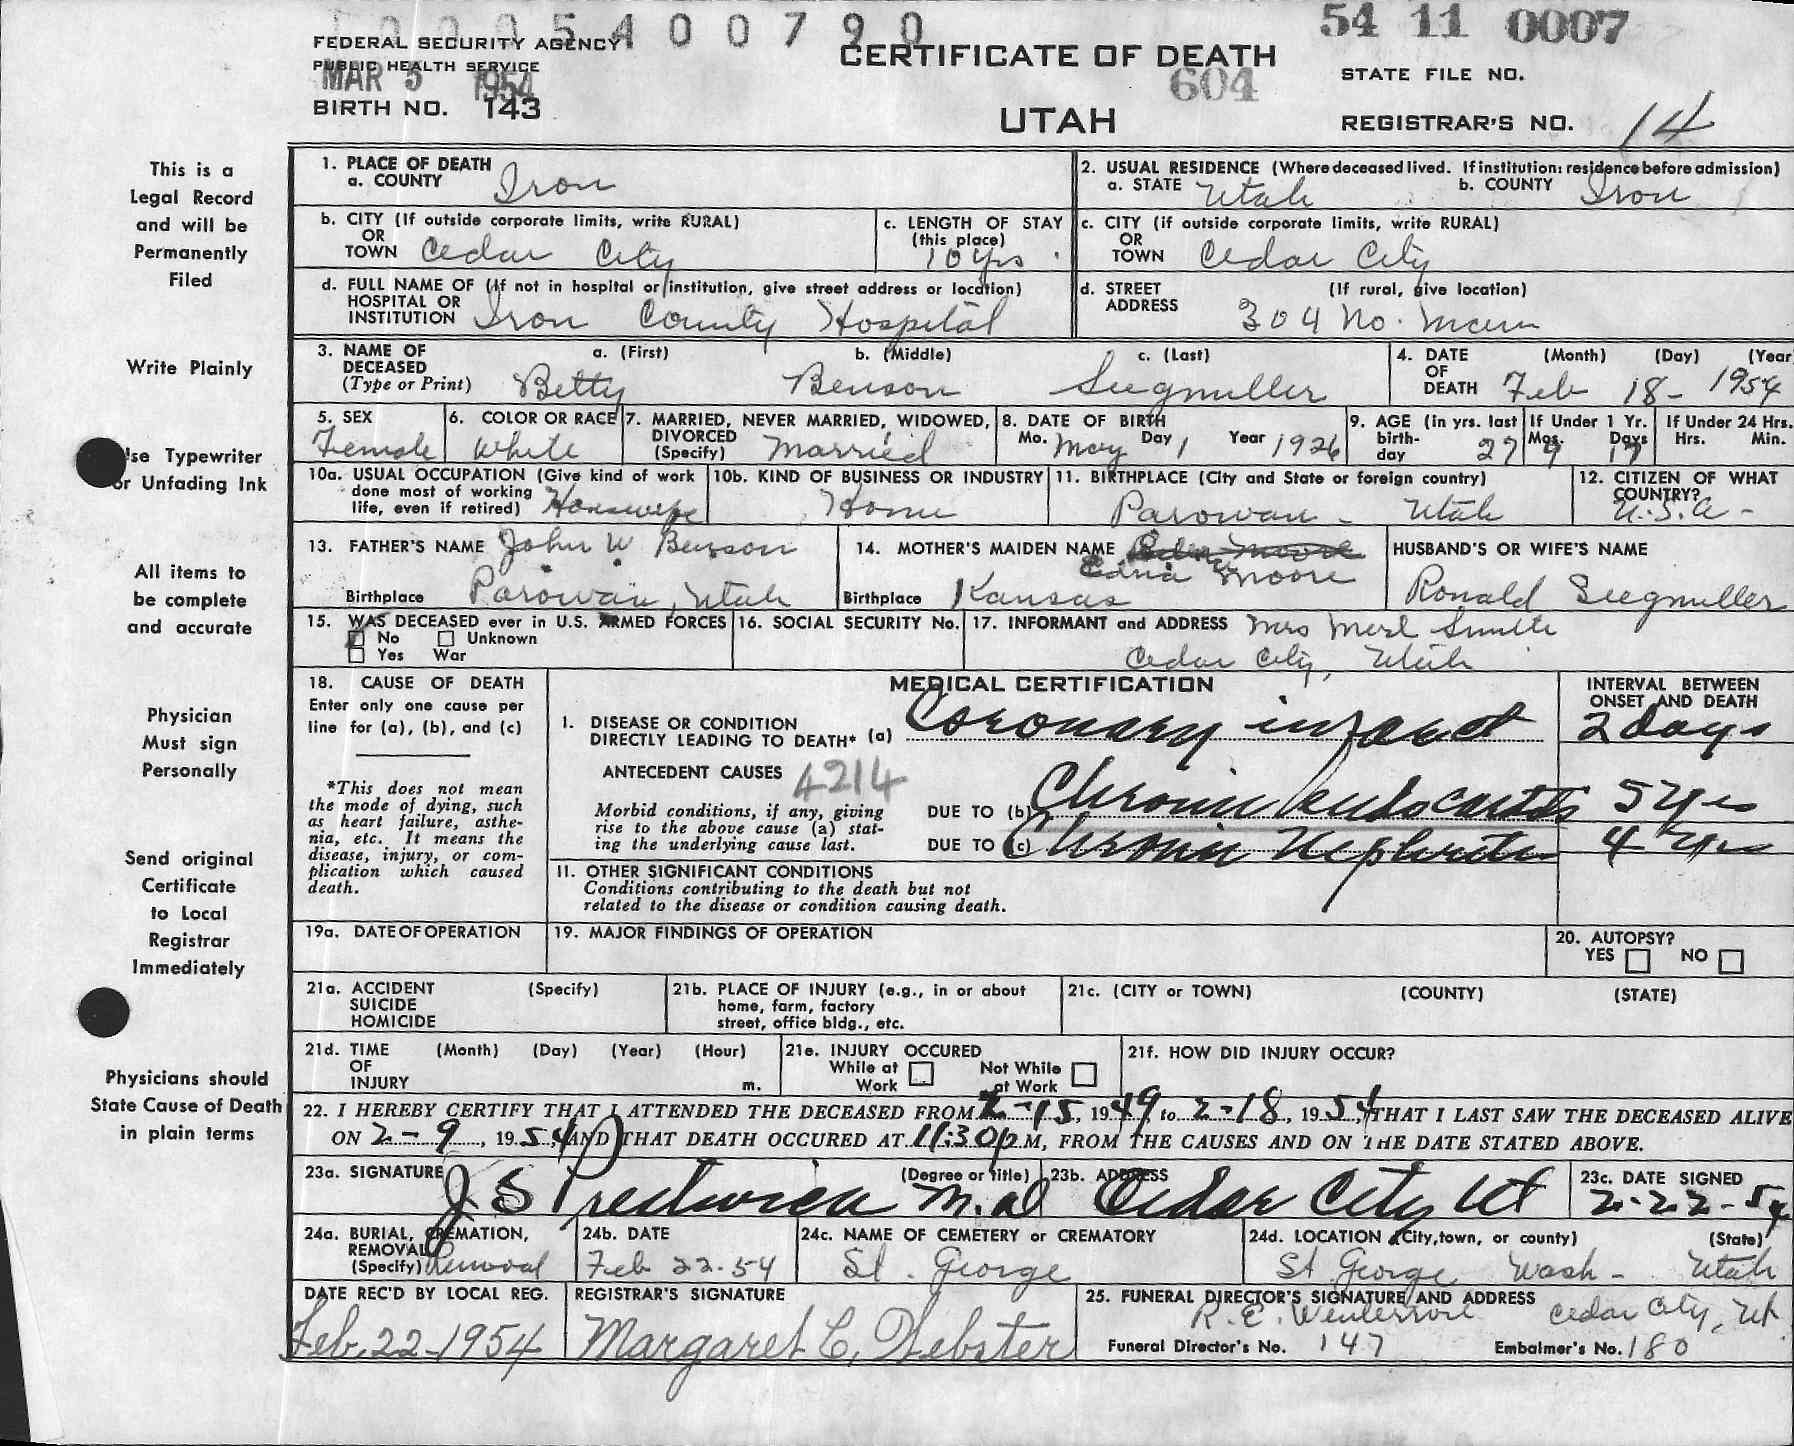 0005400790
54 11 0007
FEDERAL SECURITY AGENCY
PUBLIC HEALTH SERVICE
MAR 5 1954
BIRTH NO. 143
CERTIFICATE OF DEATH
604
UTAH
STATE FILE NO.
REGISTRAR'S NO. 14
This is a
Legal Record
and will be
Permanently
Filed
Write Plainly
Use Typewriter
or Unfading Ink
All items to
be complete
and accurate
Physician
Must sign
Personally
Send original
Certificate
to Local
Registrar
Immediately
Physicians should
State Cause of Death
in plain terms
1. PLACE OF DEATH
a. COUNTY Iron
2. USUAL RESIDENCE (Where deceased lived. If institution: residence before admission)
a. STATE Utah b. COUNTY Iron
b. CITY (If outside corporate limits, write RURAL)
OR
TOWN Cedar City
c. LENGTH OF STAY
(this place)
10 yrs
c. CITY (if outside corporate limits, write RURAL)
OR
TOWN Cedar City
d. FULL NAME OF (If not in hospital or institution, give street address or location)
HOSPITAL OR
INSTITUTION Iron County Hospital
d. STREET (If rural, give location)
ADDRESS 304 No. Main
3. NAME OF DECEASED (Type or Print)
a. (First) b. (Middle) c. (Last)
Betty Benson Seegmiller
4. DATE OF DEATH (Month) (Day) (Year
Feb 18- 1954
5. SEX
Female
6. COLOR OR RACE
White
7. MARRIED, NEVER MARRIED, WIDOWED,
DIVORCED
(Specify) Married
8. DATE OF BIRTH
Mo. May Day 1 Year 1926
9. AGE (In yrs. last
birth-
day 27
If Under 1 Yr.
Mos. 9 Days 17
If Under 24 Hrs.
Hrs. Min.
10a. USUAL OCCUPATION (Give kind of work
done most of working
life, even if retired) Housewife
10b. KIND OF BUSINESS OR INDUSTRY
Home
11. BIRTHPLACE (City and State or foreign country)
Parowan - Utah
12. CITIZEN OF WHAT
COUNTRY?
U.S.A -
13. FATHER'S NAME John W Benson
Birthplace Parowan, Utah
14. MOTHER'S MAIDEN NAME
Edna Moore
Birthplace Kansas
HUSBAND'S OR WIFE'S NAME
Ronald Seegmiller
15. WAS DECEASED ever in U.S. ARMED FORCES
No Unknown
Yes War
16. SOCIAL SECURITY No.
17. INFORMANT and ADDRESS Mrs Merl
Cedar City, Utah
18. CAUSE OF DEATH
Enter only one cause per
line for (a), (b), and (c)
*This does not mean
the mode of dying, such
as heart failure, asthe-
nia, etc. It means the
disease, injury, or com-
plication which caused
death.
MEDICAL CERTIFICATION
INTERVAL BETWEEN
ONSET AND DEATH
I. DISEASE OR CONDITION
DIRECTLY LEADING TO DEATH* (a) Coronary infarct 2 days
ANTECEDENT CAUSES 4214
Morbid conditions, if any, giving
rise to the above cause (a) stat-
ing the underlying cause last.
DUE TO (b) Chronic endocarditis 5 yrs
DUE TO (c) Chronic Nephritis 4 yrs
11. OTHER SIGNIFICANT CONDITIONS
Conditions contributing to the death but not
related to the disease or condition causing death.
19a. DATE OF OPERATION
19. MAJOR FINDINGS OF OPERATION
20. AUTOPSY?
YES NO
21a. ACCIDENT (Specify)
SUICIDE
HOMICIDE
21b. PLACE OF INJURY (e.g., in or about
home, farm, factory
street, office bldg., etc.
21c. (CITY or TOWN) (COUNTY) (STATE)
21d. TIME (Month) (Day) (Year) (Hour)
OF
INJURY m.
21e. INJURY OCCURED
While at Work
Not While at Work
21f. HOW DID INJURY OCCUR?
22. I HEREBY CERTIFY THAT I ATTENDED THE DECEASED FROM 2-15, 1949, to 2-18, 1954, THAT I LAST SAW THE DECEASED ALIVE
ON 2-9, 1954, AND THAT DEATH OCCURED AT 11:30 P.M, FROM THE CAUSES AND ON THE DATE STATED ABOVE.
23a. SIGNATURE (Degree or title)
J S Prestwich M.D
23b. ADDRESS
Cedar City Ut
23c. DATE SIGNED
2-22-54
24a. BURIAL, CREMATION,
REMOVAL
(Specify) Removal
24b. DATE
Feb 22-54
24c. NAME OF CEMETERY OR CREMATORY
St. George
24d. LOCATION (City, town, or county) (State)
St George Wash - Utah
DATE REC'D BY LOCAL REG.
Feb. 22-1954
REGISTRAR'S SIGNATURE
Margaret C. Webster
25. FUNERAL DIRECTOR'S SIGNATURE AND ADDRESS
R. E. Cedar City, Ut
Funeral Director's No. 147 Embalmer's No. 180